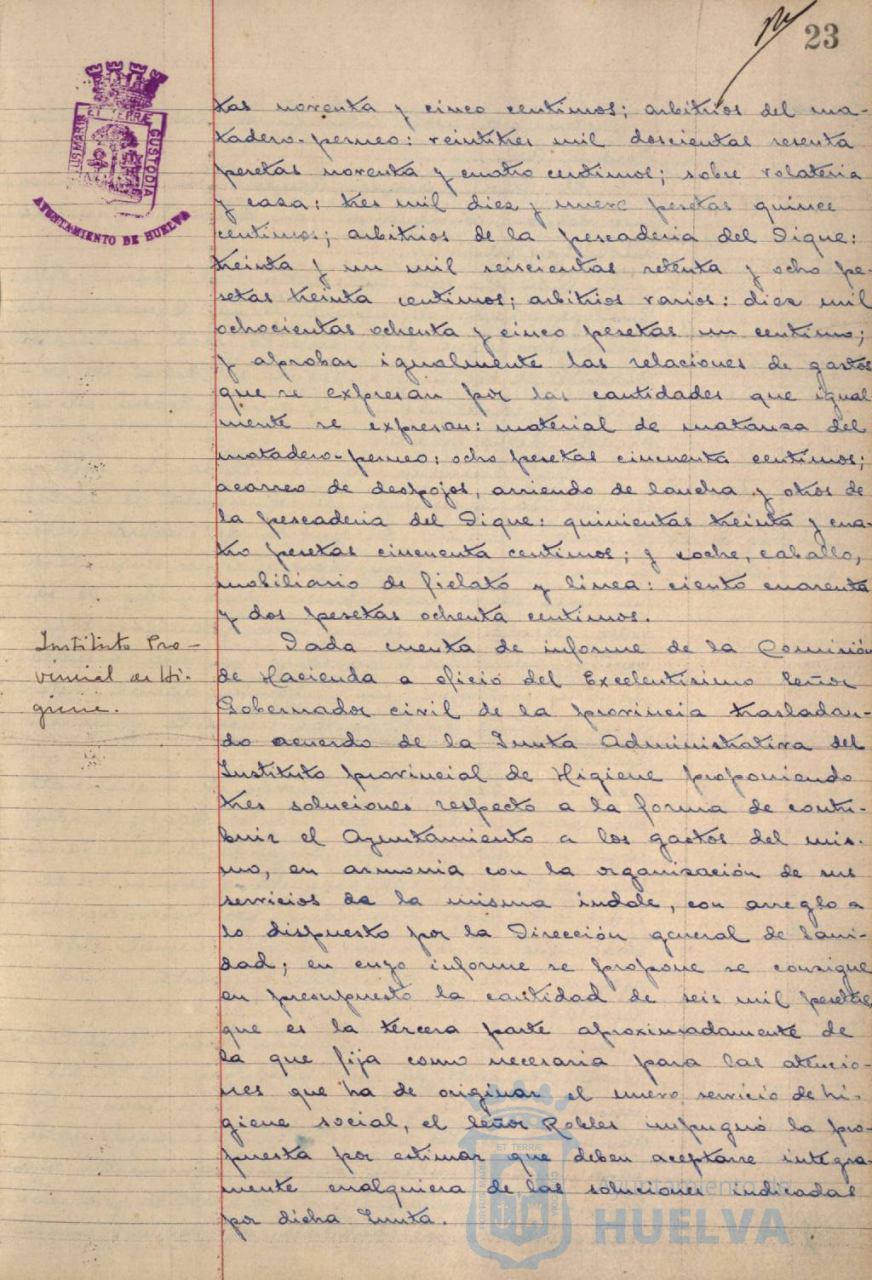 23
ET TERRAE
CUSTODIA
AYUNTAMIENTO DE HUELVA
tas noventa y cinco centimos; arbitrios del ma-
tadero-perneo: veintitres mil doscientas sesenta
pesetas noventa y cuatro centimos; sobre volateria
y casa: tres mil diez y nueve pesetas quince
centimos; arbitrios de la pescaderia del Dique:
treinta y un mil seiscientas setenta y ocho pe-
setas treinta centimos; arbitrios varios: diez mil
ochocientas ochenta y cinco pesetas un centimo;
y aprobar igualmente las relaciones de gastos
que se expresan por las cantidades que igual-
mente se expresan: material de matanza del
matadero-perneo: ocho pesetas cincuenta centimos;
acarreo de despojos, arriendo de lancha y otros de
la pescaderia del Dique: quinientas treinta y cua-
tro pesetas cincuenta centimos; y coche, caballo,
mobiliario de fielato y linea: ciento cuarenta
y dos pesetas ochenta centimos.
Instituto Pro-
vincial de Hi-
giene.
Dada cuenta de informe de la Comisión
de Hacienda a oficio del Excelentisimo Señor
Gobernador civil de la provincia trasladan-
do acuerdo de la Junta Administrativa del
Instituto provincial de Higiene proponiendo
tres soluciones respecto a la forma de contri-
buir el Ayuntamiento a los gastos del mis-
mo, en armonia con la organización de sus
servicios de la misma indole, con arreglo a
lo dispuesto por la Dirección general de Sani-
dad; en cuyo informe se propone se consigue
en presupuesto la cantidad de seis mil pesetas
que es la tercera parte aproximadamente de
la que fija como necesaria para las atencio-
nes que ha de originar el nuevo servicio de hi-
giene social, el Señor Robles impugnó la pro-
puesta por estimar que deben aceptarse integra-
mente cualquiera de las soluciones indicadas
por dicha Junta.
ET TERRAE
Ayuntamiento de
HUELVA